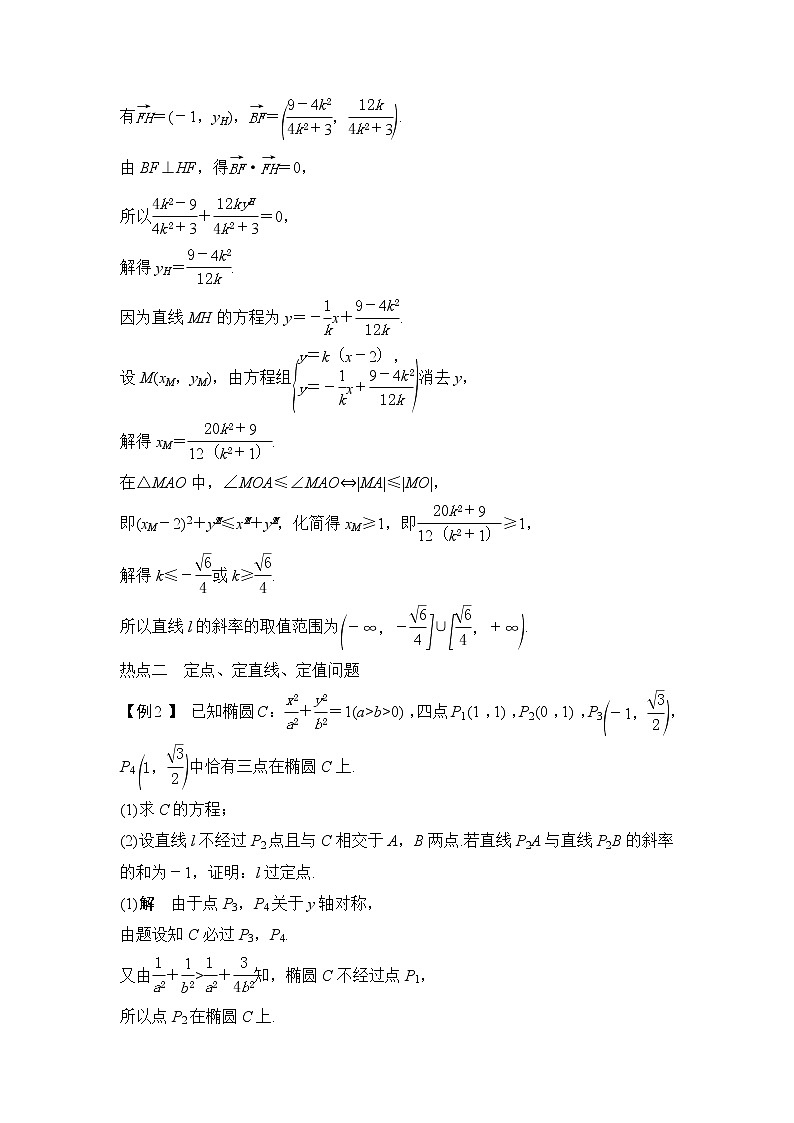 有FH→=(-1，y_H)，BF→=((9-4k²)/(4k²+3)，12k/(4k²+3)).
由 BF⊥HF，得BF→·FH→=0，
所以(4k²-9)/(4k²+3)+12ky_H/(4k²+3)=0，
解得 y_H=(9-4k²)/12k.
因为直线 MH 的方程为 y=-(1/k)x+(9-4k²)/12k.
设 M(x_M，y_M)，由方程组{y=k（x-2），y=-(1/k)x+(9-4k²)/12k 消去 y，
解得 x_M=(20k²+9)/12（k²+1）.
在△MAO 中，∠MOA≤∠MAO⇔|MA|≤|MO|，
即(x_M-2)²+y≤x+y，化简得 x_M≥1，即(20k²+9)/12（k²+1）≥1，
解得 k≤-√6/4或 k≥√6/4.
所以直线 l 的斜率的取值范围为(-∞，-√6/4]∪[√6/4，+∞).
热点二　定点、定直线、定值问题
【例2 】 已知椭圆 C：x²/a²+y²/b²=1(a>b>0)，四点 P₁(1，1)，P₂(0，1)，P₃(-1，√3/2)，
P₄(1，√3/2)中恰有三点在椭圆 C 上.
(1)求 C 的方程；
(2)设直线 l 不经过 P₂点且与 C 相交于 A，B 两点.若直线 P₂A 与直线 P₂B 的斜率
的和为-1，证明：l 过定点.
(1)解　由于点 P₃，P₄关于 y 轴对称，
由题设知 C 必过 P₃，P₄.
又由1/a²+1/b²>1/a²+3/4b²知，椭圆 C 不经过点 P₁，
所以点 P₂在椭圆 C 上.